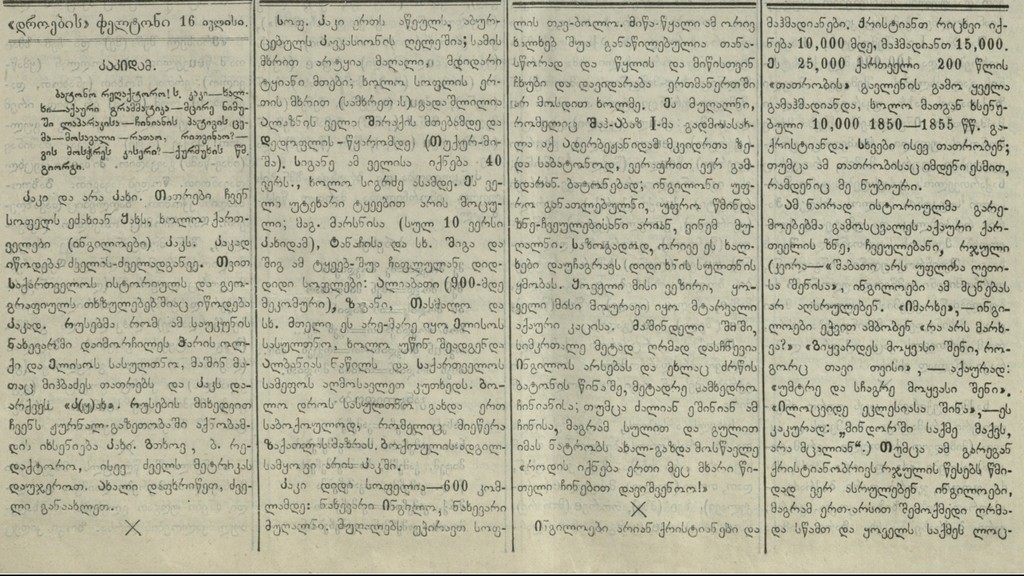 «დროების» ფელტონი 16 ივლისი.
კაკიდამ.
ბატონო რედაქტორო! ს. კაკი—ხალ-
ხი—აქაური გრამმატიკა—მცირე ნიმუ-
ში ლაპარაკისა—ჩინიანის პატივის ცე-
მა—მოსავალი—რათაო, რითვინაო?—
გის მოსჭრეს კისერი?—ქურმუხის წმ.
გიორგი.
კაკი და არა კახი. თათრები ჩვენ
სოფელს ეძახიან ყახს, ხოლო ქართ-
ველები (ინგილოები) კაკს. კაკად
იწოდება ძველის-ძველადგანვე. თვით
საქართველოს ისტორიულს და გეო-
გრაფიულს თხზულებებშიაც იწოდება
კაკად. რუსებმა რომ ამ საუკუნის
ნახევარში დაიმორჩილეს ჭარის ოლ-
ქი და ელისოს სასულთნო, მაშინ მა-
თაც მიჰბაძეს თათრებს და კაკს და-
არქვეს «კ(ყ)ახ». რუსების მიხედვით
ჩვენს ჟურნალ-გაზეთობაში აქნობამ-
დის იხსენიება კახი. გთხოვ, ბ. რე-
დაქტორო, ისევ ძველს მეტრიკას
დაუჯეროთ. ახალი დაფხრიწეთ, ძვე-
ლი განაახლეთ.
×
სოფ. კაკი ერთს აწეულს, აბურ-
ცებულს კავკასიონის ღელეშია; სამის
მხრით არტყია მაღალი, მდიდარი
ტყიანი მთები; ხოლო სოფლის ერ-
თის მხრით (სამხრეთის) გადაშლილია
ალაზნის ველი შირაქის მთებამდე და
დედოფლის-წყარომდე) (თუქურ-მი-
შა). სიგანე ამ ველისა იქნება 40
ვერს., ხოლო სიგრძე ასამდე. ეს ვე-
ლი უტეხარი ტყეებით არის მოცუ-
ლი; მაგ. მარსნისა (სულ 10 ვერსი
კახიდამ), ტანაჩისა და სხ. შიგა და
შიგ ამ ტყეებ-შუა ჩაფლულან დიდ-
დიდი სოფლები: ალიაბათი (900-მდე
მეკომური), ზეგანი, თასმალო და
სხ. მთელი ეს არე-მარე იყო ელისოს
სასულთნო, ხოლო უწინ შეადგენდა
ალბანიას ნაწილს და საქართველოს
სამეფოს აღმოსავლეთ კუთხედს. ბო-
ლო დროს სასულთნო გახდა ერთ
საბოქოულოდ, რომელიც მიეწერა
ზაქათლის მაზრას. ბოქოულის ადგილ-
სამყოფი არის კაკში.
კაკი დიდი სოფელია—600 კომ-
ლამდე: ნახევარი ინგილო, ნახევარი
მუღალნი. მუღალებს უჭირავთ სოფ-
ლის თავ-ბოლო. მიწა-წყალი ამ ორივ
ხალხებ შუა განაწილებულია თანა-
სწორად და წყლის და მიწისთვინ
ჩხუბი და დავიდარაბა ერთმანერთში
არ მოსდით ხოლმე. ეს მუღალნი,
რომელიც შაჰ-აბაზ I-მა გადმოასახ-
ლა აქ ადერბეჟანიდამ მკვიდრთა ზე-
და საბატონოდ, ვერაფრით ვერ გამ-
ხდარან ბატონებად; ინგილონი უფ-
რო განათლებულნი, უფრო წმინდა
ზნე-ჩვეულებისანი არიან, ვინემ მუ-
ღალნი. საზოგადოდ, ორივე ეს ხალ-
ხები დაუჩაგრავს დიდი ხნის სულთნის
ყმობას. ყოველი მისი ვეზირი, ყო-
ველი მისი მოურავი იყო მტარვალი
აქაური კაცისა. მაშინდელი შიში,
სიმკრთალე მეტად ღრმად დასჩნევია
ინგილოს არსებას და ეხლაც ძრწის
ბატონის წინაშე, მეტადრე სამხედრო
ჩინიანისა; თუმცა ძალიან ეშინიან ამ
ჩინისა, მაგრამ სულით და გულით
იმას ნატრობს ახალ-გაზდა მოსწავლე
«როდის იქნება ერთი მეც მხარი წი-
თელი ჩინებით დავიმშვენოო!»
×
ინგილოები არიან ქრისტიანები და
მაჰმადიანები. ქრისტიანთ რიცხვი იქ-
ნება 10,000 მდე, მაჰმადიანთ 15,000.
ეს 25,000 ქართველი 200 წლის
«თათრობის» გავლენის გამო ყველა
გამაჰმადიანდა, ხოლო მათგან ხსენე-
ბული 10,000 1850—1855 წწ. გა-
ქრისტიანდა. სხვები ისევ თათრობენ;
თუმცა ამ თათრობისაც იმდენი ესმით,
რამდენიც მე ნუბიური.
ამ ნაირად ისტორიულმა გარე-
მოებებმა გამოსცვალეს აქაური ქარ-
თველის ზნე, ჩვეულებანი, რჯული
(კვირა—«შაბათი არს უფლისა ღვთი-
სა შენისა», ინგილოები ამ მცნებას
არ აღსრულებენ. «იმარხე»,—ინგი-
ლოები ეჭვით ამბობენ «რა არს მარხ-
ვა?» «გიყვარდეს მოყვასი შენი, რო-
გორც თავი თვისი»,—აქაურად:
«უმტრე და სჩაგრე მოყვასი შენი».
«ილოცვიდე ეკლესიასა შინა»,—ეს
კაკურად: „მინდორში საქმე მაქვს,
არა მცალიან“.) თუმცა ამ გარეგან
ქრისტიანობრივს რჯულის წესებს წმი-
დად ვერ ასრულებენ ინგილოები,
მაგრამ ერთ-არსით შემოქმედი ღრმა-
და სწამთ და ყოველს საქმეს ლოც-